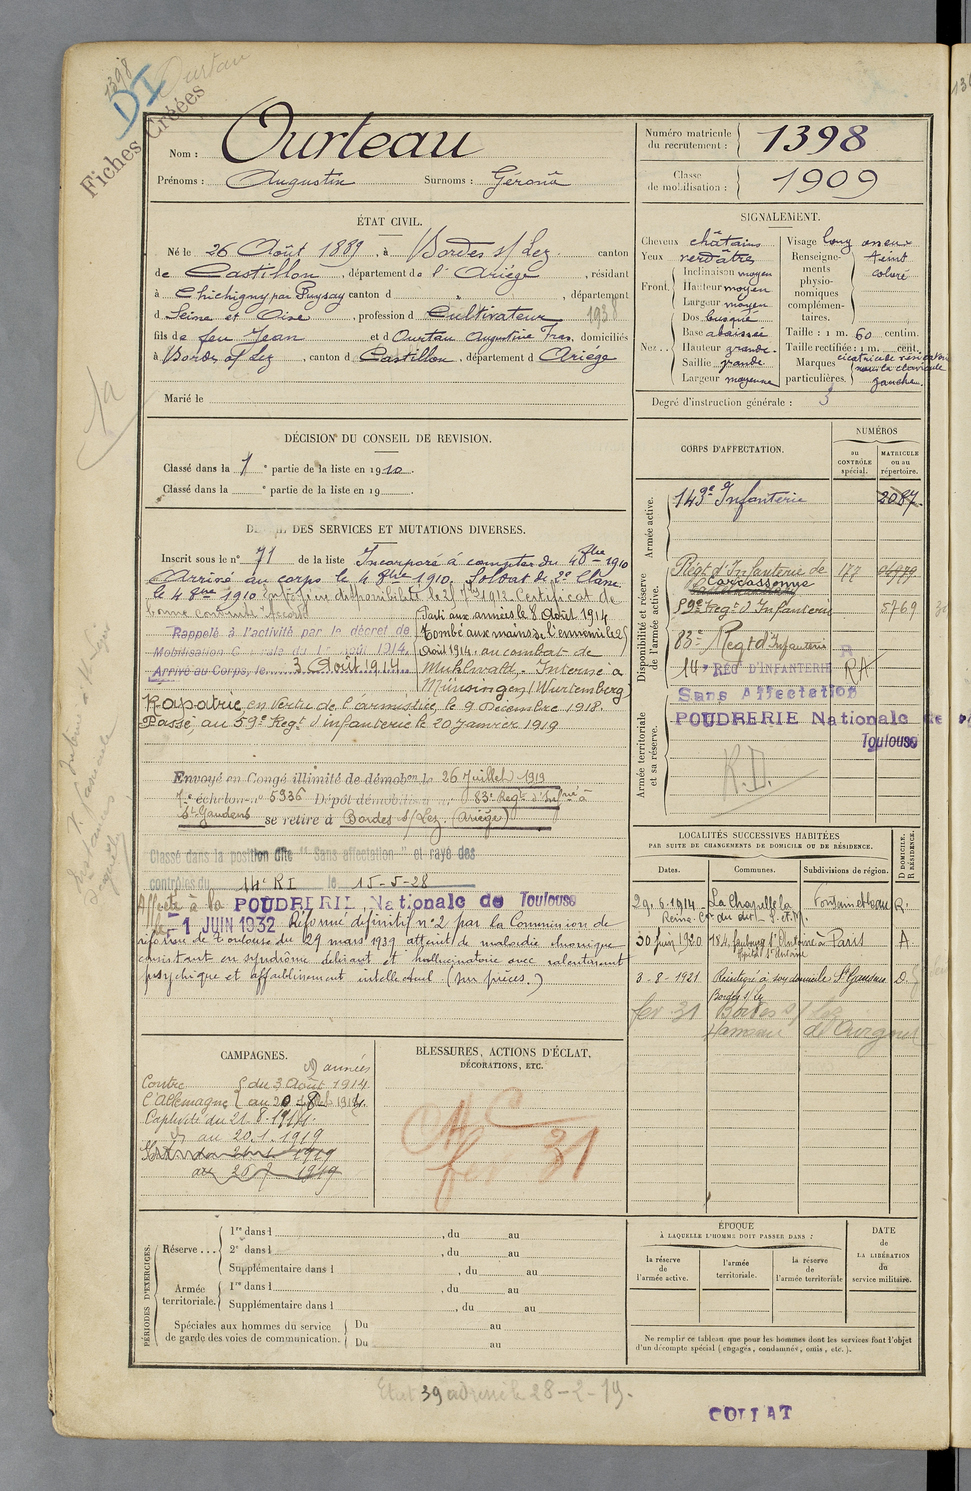 1398
DI
Ourtau
Fiches Créées
Nom : Ourteau
Prénoms : Augustin Surnoms : Géronù
Numéro matricule du recrutement : 1398
Classe de mobilisation : 1909
ÉTAT CIVIL.
Né le 26 Août 1889, à Bordes s/ Lez canton
de Castillon, département de l'Ariège, résidant
à Chichigny par Puysay canton d , département
d Seine et Oise, profession d Cultivateur 1938
fils de feu Jean et d Ourtau Augustine Fras, domiciliés
à Bordes s/ Lez, canton d Castillon, département d Ariège
Marié le
SIGNALEMENT.
Cheveux châtains
Yeux verdâtres
Front. Inclinaison moyen
Hauteur moyen
Largeur moyen
Nez.. Dos busqué
Base abaissée
Hauteur grande.
Saillie grande
Largeur moyenne
Visage long osseux
Renseignements physionomiques complémentaires. teint coloré
Taille : 1 m. 60 centim.
Taille rectifiée : 1 m. cent.
Marques particulières. cicatricule
sous la clavicule
gauche.
Degré d'instruction générale : 3
1a
DÉCISION DU CONSEIL DE REVISION.
Classé dans la 1e partie de la liste en 1910.
Classé dans la e partie de la liste en 19
CORPS D'AFFECTATION.
NUMÉROS
au CONTRÔLE spécial.
MATRICULE ou au répertoire.
Armée active.
143e Infanterie 2087
Disponibilité et réserve de l'armée active.
Régt d'Infanterie de Carcassonne 177 04979
59e Régt d'Infanterie 5769
83e Regt d'Infanterie
14e REG D'INFANTERIE RA
Sans Affectation
Armée territoriale et sa réserve.
POUDRERIE Nationale de
Toulouse
R.D.
DES SERVICES ET MUTATIONS DIVERSES.
Inscrit sous le n° 71 de la liste Incorporé à compter du 4 8bre 1910
Arrivé au corps le 4 8bre 1910. Soldat de 2e Classe
le 4 8bre 1910 en disponibilité le 25 7bre 1912. Certificat de
bonne conduite accordé
Rappelé à l'activité par le décret de
Mobilisation Générale du 1er août 1914.
Arrivé au Corps, le 3 Août 1914
Parti aux armées le 8 Août 1914
Tombé aux mains de l'ennemi le 21
Août 1914. au combat de
Muhlwald. Interné à
Münsingen (Wurtemberg)
Rapatrié en vertu de l'armistice, le 9 Décembre 1918.
Passé au 59e Regt d'infanterie le 20 Janvier 1919
Envoyé en Congé illimité de démobon le 26 Juillet 1919
7e échelon n° 5936 Dépôt démobilisateur 83e Regt d'Infrie à
St Gaudens se retire à Bordes s/ Lez (Ariège)
Classé dans la position dite "Sans affectation" et rayé des
contrôles du 14e RI le 15-5-28
Affecté à la POUDRERIE Nationale de Toulouse
le 1 JUIN 1932 Réformé définitif n°2 par la Commission de
réforme de Toulouse du 29 mars 1939 atteint de maladie chronique
consistant en syndrôme délirant et hallucinatoire avec ralentissement
psychique et affaiblissement intellectuel (sur pièces.)
LOCALITÉS SUCCESSIVES HABITÉES
PAR SUITE DE CHANGEMENTS DE DOMICILE OU DE RÉSIDENCE.
Dates.
Communes.
Subdivisions de région.
D DOMICILE. R RÉSIDENCE.
29.6.1914. La Chapelle la Fontainebleau R.
Reine. Con du dit S. et M.
30 Juin 1920 184, faubourg St Antoine à Paris A.
Hôpital St Antoine
3-8-1921 Réintégré à son domicile St Gaudens D.
Bordes s/ Lez
fev 31 Bordes s/ Lez
Hameau d'Ourgnet
CAMPAGNES.
2 années
Contre l'Allemagne du 3 Août 1914
au 20-8-1914.
Captivité du 21-8-1914.
au 20.1.1919
1919
au 26 7 1919
BLESSURES, ACTIONS D'ÉCLAT,
DÉCORATIONS, ETC.
fev 31
PÉRIODES D'EXERCICES.
Réserve... 1re dans l , du au
2e dans l , du au
Supplémentaire dans l , du au
Armée territoriale. 1re dans l , du au
Supplémentaire dans l , du au
Spéciales aux hommes du service de garde des voies de communication. Du au
Du au
ÉPOQUE
À LAQUELLE L'HOMME DOIT PASSER DANS :
la réserve de l'armée active.
l'armée territoriale.
la réserve de l'armée territoriale
DATE de LA LIBÉRATION du service militaire.
Ne remplir ce tableau que pour les hommes dont les services font l'objet
d'un décompte spécial (engagés, condamnés, omis, etc.).
Etat 39 adressé le 28-2-19.
COLLAT